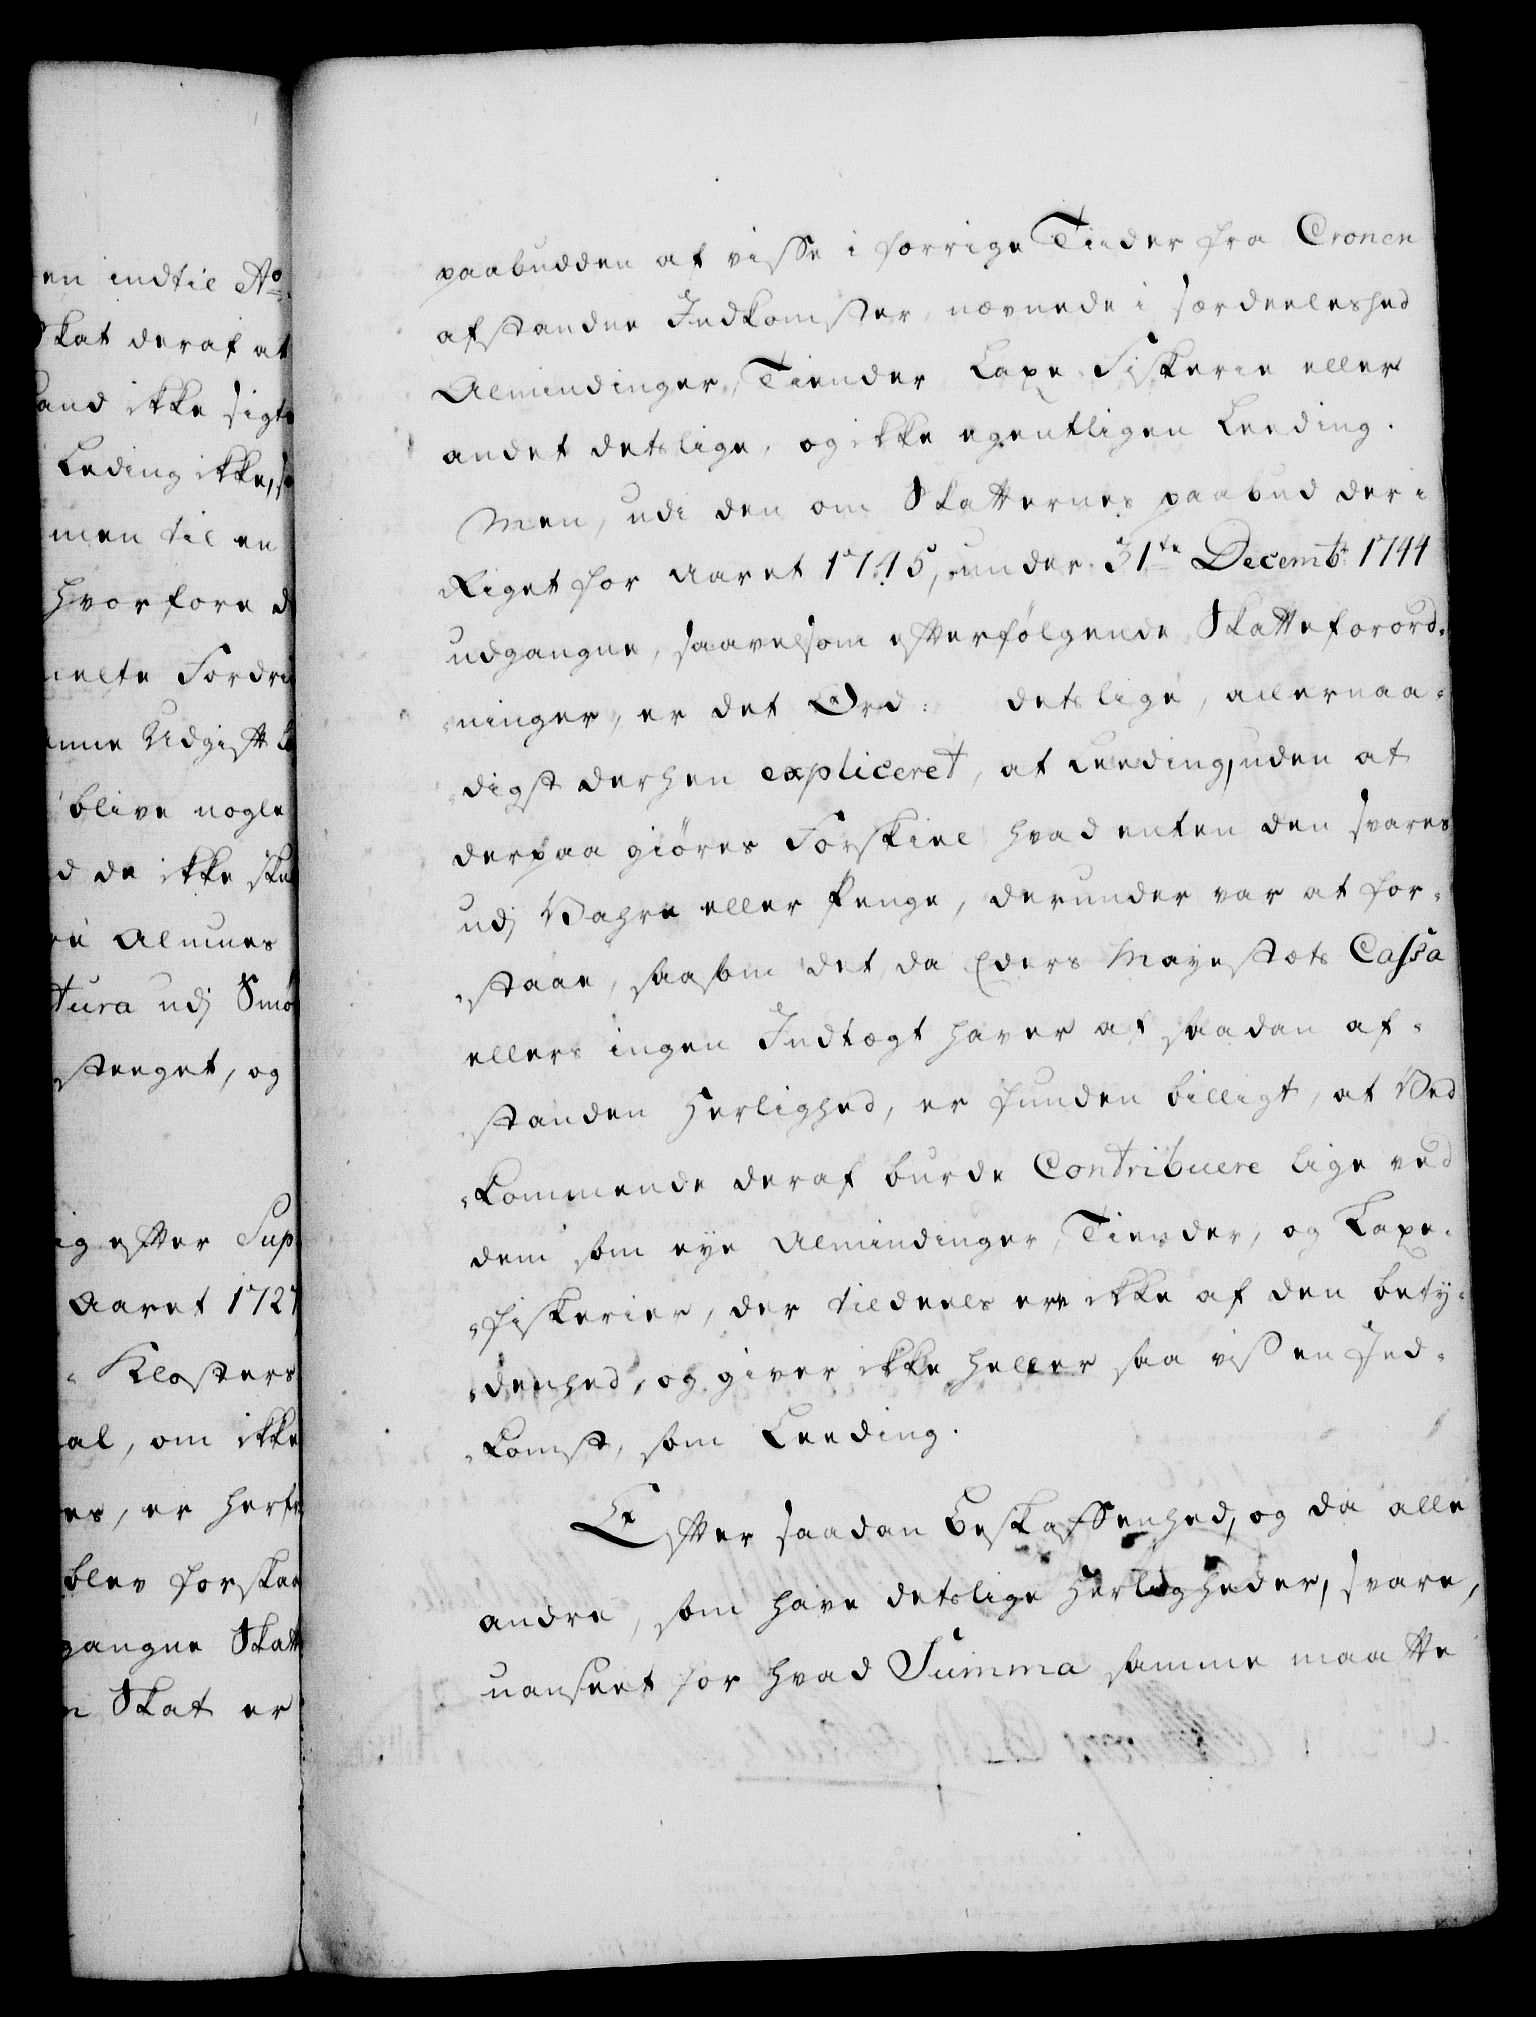 en indtil Ao
Skat deraf at
land ikke sigte
Leding ikke, 
men til en
hvorfore d
melte Fordri
enne Udgift 
blive nogle
d de ikke skul
Alumnes
tura udj Smør
stenget, og
ig efter Sup
Aaret 1727
Klosters
al, om ikke
es, er herfr
blev forskaa
gangne Skatt
n Skat er
paabudden af visse i forrige Tiider fra Cronen
afstandne Indkomster, nævnede i særdeeleshed
Almindinger, Tiender Laxe-Fiskerie eller
andet detslige, og ikke egentligen Leeding.
Men, udi den om Skatternes paabud der i
Riget for Aaret 1745, under 31te Decembr 1744
udgangne, saavelsom efterfølgende Skatteforord-
ninger, er det Ord: detslige, allernaa-
digst derhen expliceret, at Leeding, uden at
derpaa giøres Forskiel hvad enten den svares
udj Vahre eller Penge, derunder var at for-
staae, saasom det, da Eders Mayestæts Cassa
ellers ingen Indtægt haver af saadan af-
standen Herlighed, er funden billigt, at Ved
kommende deraf burde Contribuere lige ved
dem som eye Almindinger, Tiender, og Laxe-
fiskerier, der tildeels ere ikke af den bety-
denhed, og giver ikke heller saa viss en Ind-
komst, som Leeding.
Efter saadan Beskaffenhed, og da alle
andre, som have detslige Herligheder, svare,
uanseet for hvad Summa samme maatte